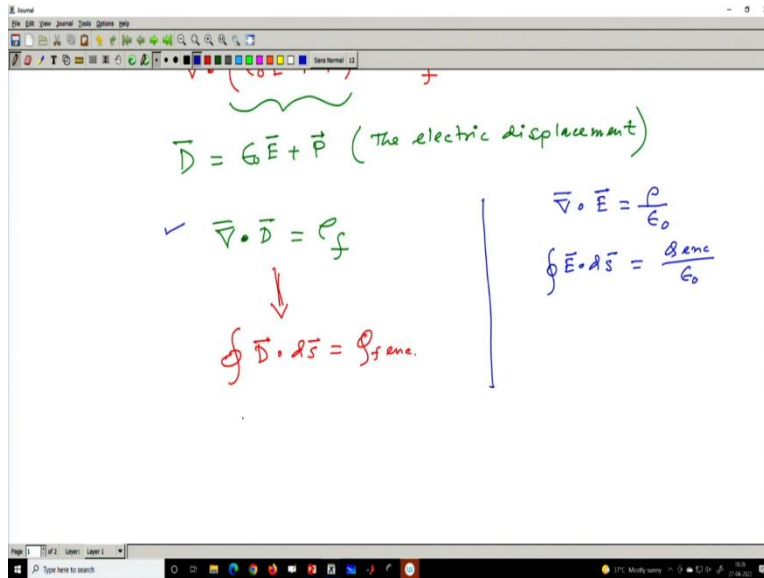 Journal
File Edit View Journal Tools Options Help
Sans Normal 12
f
D̄ = ϵ₀ Ē + P⃗ (The electric displacement)
∇̄ • D̄ = ρ_f
∮ D⃗ • ds̄ = Q_f enc.
∇̄ • E⃗ = ρ/ϵ₀
∮ Ē • ds̄ = Q enc/ϵ₀
Page 1 of 2 Layer: Layer 1
Type here to search
37°C Mostly sunny